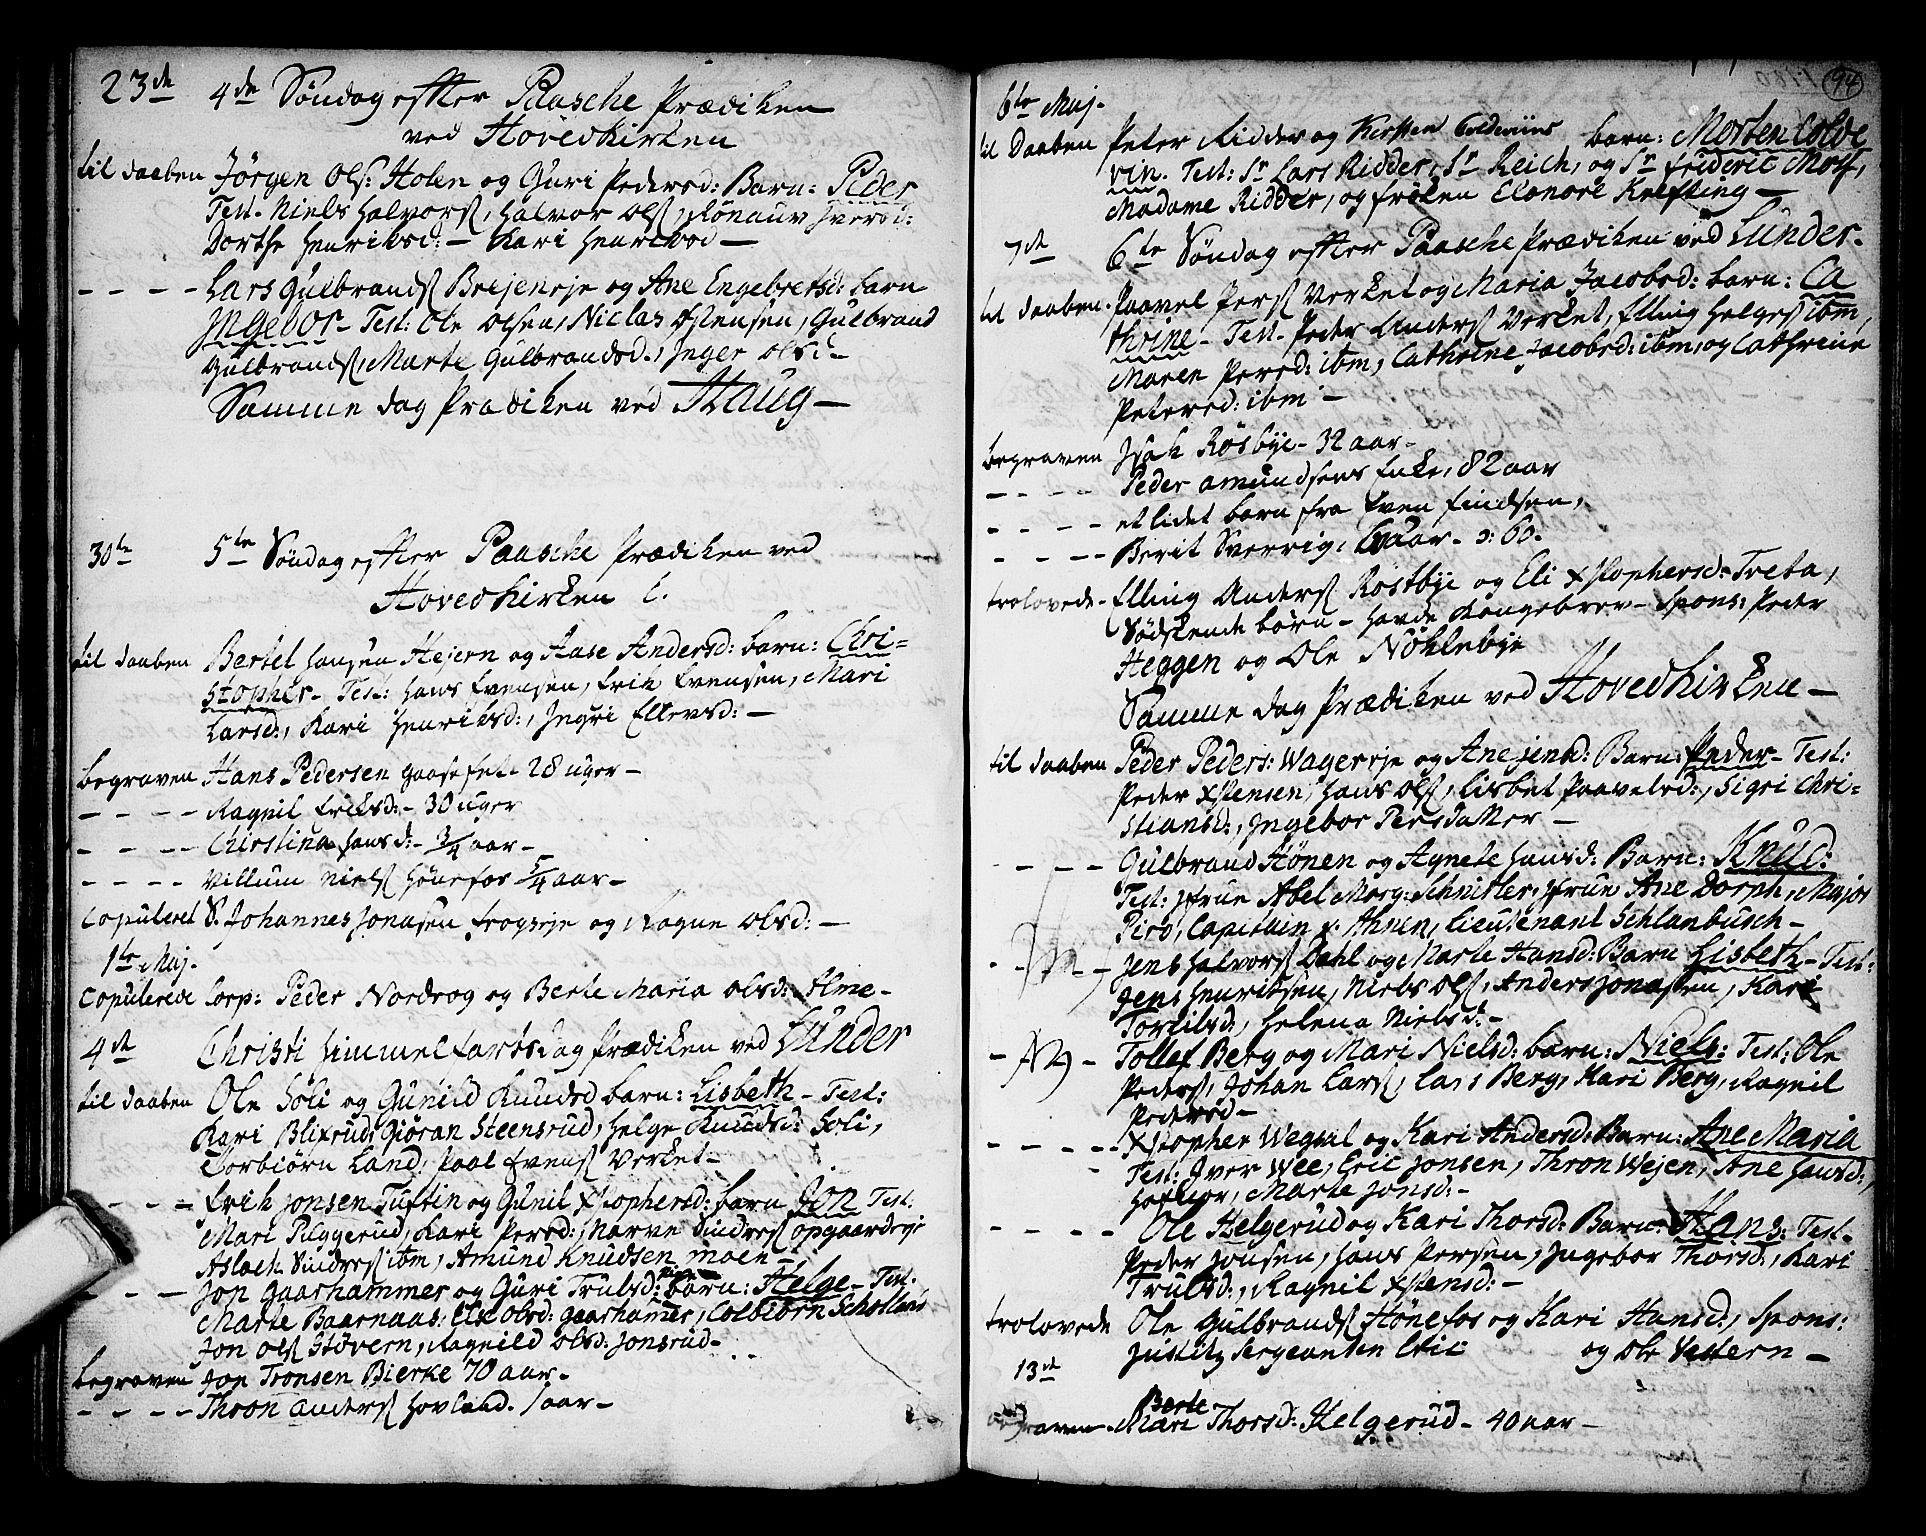 23de 4de Søndag efter Paasche Prædiken
ved Hovedkirken
til daaben Jörgen Ols: Holen og Guri Pedersd: Barn: Peder
Test. Niels Halvors, Halvor Ols, Rönauv Iversd:
Dorthe Henriksd: – Kari Henriksd –
– – – – Lars Gulbrands Breieneje og Ane Engebretsd: barn
Ingebor – Test: Ole Olsen, Niclas Ostensen, Gulbrand
Gulbrands, Marte Gulbrandsd., Inger Olsd –
Samme dag Prædiken ved Haug –
30te 5te Søndag efter Paasche Prædiken ved
Hovedkirken
til daaben Bertel Hansen Hejern og Aase Andersd: barn: Chri-
stopher – Test: Hans Evensen, Erik Evensen, Mari
Larsd:, Kari Henriksd:, Ingri Ellevsd: –
begraven Hans Pedersen Gaasefet – 28 uger –
– – – – Ragnil Eriksd: – 30 uger
– – – – Christina Hansd: – 3/4 aar –
– – – – Villum Niels Hönefos 5/4 aar –
Copuleret S. Johannes Jonasen Frogseje og Ragne Olsd: –
1te Maj.
Copulerede Corp: Peder Nordrog og Berte Maria Olsd: Alme –
4de Christi Himmelfartsdag Prædiken ved Lunder
til daaben Ole Soli og Gunild Knudsd barn: Lisbeth – Test:
Kari Blixrud, Giöran Steensrud, Helge Knudsd: Soli,
Torbiörn Land, Paal Evens Verket –
– – – Erik Jonsen Tuftin og Gunil Xstophersd: barn Jon Test:
Mari Puggerud, Kari Persd:, Narve Sindres opgaardeje
Aslach Sindres ibm, Amund Knudsen Moen –
– – – Jon Gaarhammer og Guri Trulsd: barn: Helge – Test.
Marte Baarnaas: Else Olsd: Gaarhamer, Colbiörn
Jon Ols Hövern, Ragnild Olsd: Jonsrud –
begraven Jon Tronsen Bierke 70 aar –
– – – – Thron Anders Hovland. 1 aar –
94
6te Maj.
til Daaben Peter Ridder og Kirsten Coldeviins barn: Morten Colde
vin. Test: Sr Lars Ridder, Sr Reich, og Sr Frideric
Madame Ridder, og Fröken Elonore Krefting –
7de 6te Søndag efter Paasche Prædiken ved Lunder –
til daaben. Paavel Pers Verket og Maria Jacobsd: barn: Ca
thrine – Test. Peder Anders Verket, Elling Helges ibm,
Maren Persd: ibm, Cathrine Jacobsd: ibm, og Cathrine
Petersd: ibm –
begraven Isak Rösbye – 32 aar –
– – – – Peder Amundsens Enke, 82 aar
– – – – et lidet barn fra Even Findsen,
– – – – Berit Sverrig, 60 aar – ɔ: 60.
trolovede – Elling Anders Rostbye og Eli Xstophersd: Treta,
Södskende börn – havde Kongebrev – Spons: Peder
Heggen og Ole Nöklebye
Samme dag Prædiken ved Hovedkirken –
til daaben Peder Peders: Wagereje og Ane Jensd: Barn: Peder – Test:
Peder Xstensen, Hans Ols, Lisbet Paavelsd:, Sigri Chri-
stiansd:, Ingebor Persdatter –
– – – – Gulbrand Hönen og Agnete Hansd: Barn: Knud:
Test: Jfrue Abel Marg: Schnitler, Jfrue Ane Dorph, Major
Piro, Capitain v. Ahnen, Lieutenant Schlanbusch –
Jens Halvors Dahl og Marte Hansd: Barn Lisbeth – Test:
Jens Henriksen, Niels Ols, Anders Jonasen, Kari
Torkilsd:, Helena Nielsd: –
Tollef Berg og Mari Nielsd: barn: Niels: Test: Ole
Peders, Johan Lars, Lars Berg, Kari Berg, Ragnil
Pedersd –
– – – – Xstopher Wegsal og Kari Andersd: Barn: Ane Maria
Test: Iver Wee, Eric Jonsen, Thron Wejen, Ane Hansd:,
Marte Jonsd: –
– – – – Ole Helgerud og Kari Thorsd: Barn: Hans: Test –
Peder Jonsen, Hans Persen, Ingebor Thorsd:, Kari
Trulsd:, Ragnil Xstensd: –
trolovede Ole Gulbrands Hönefos og Kari Hansd:, Spons:
Justitz Sergeanten Eric og Ole Vestern –
13de
Berte
begraven – Mari Thorsd: Helgerud – 40 aar –